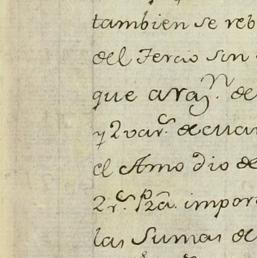 tambien se reb
del Tercio sin
que araz.n de
y 2 var.s de cua
el Amo dio de
2 r.s P.ta impor
las Sumas de